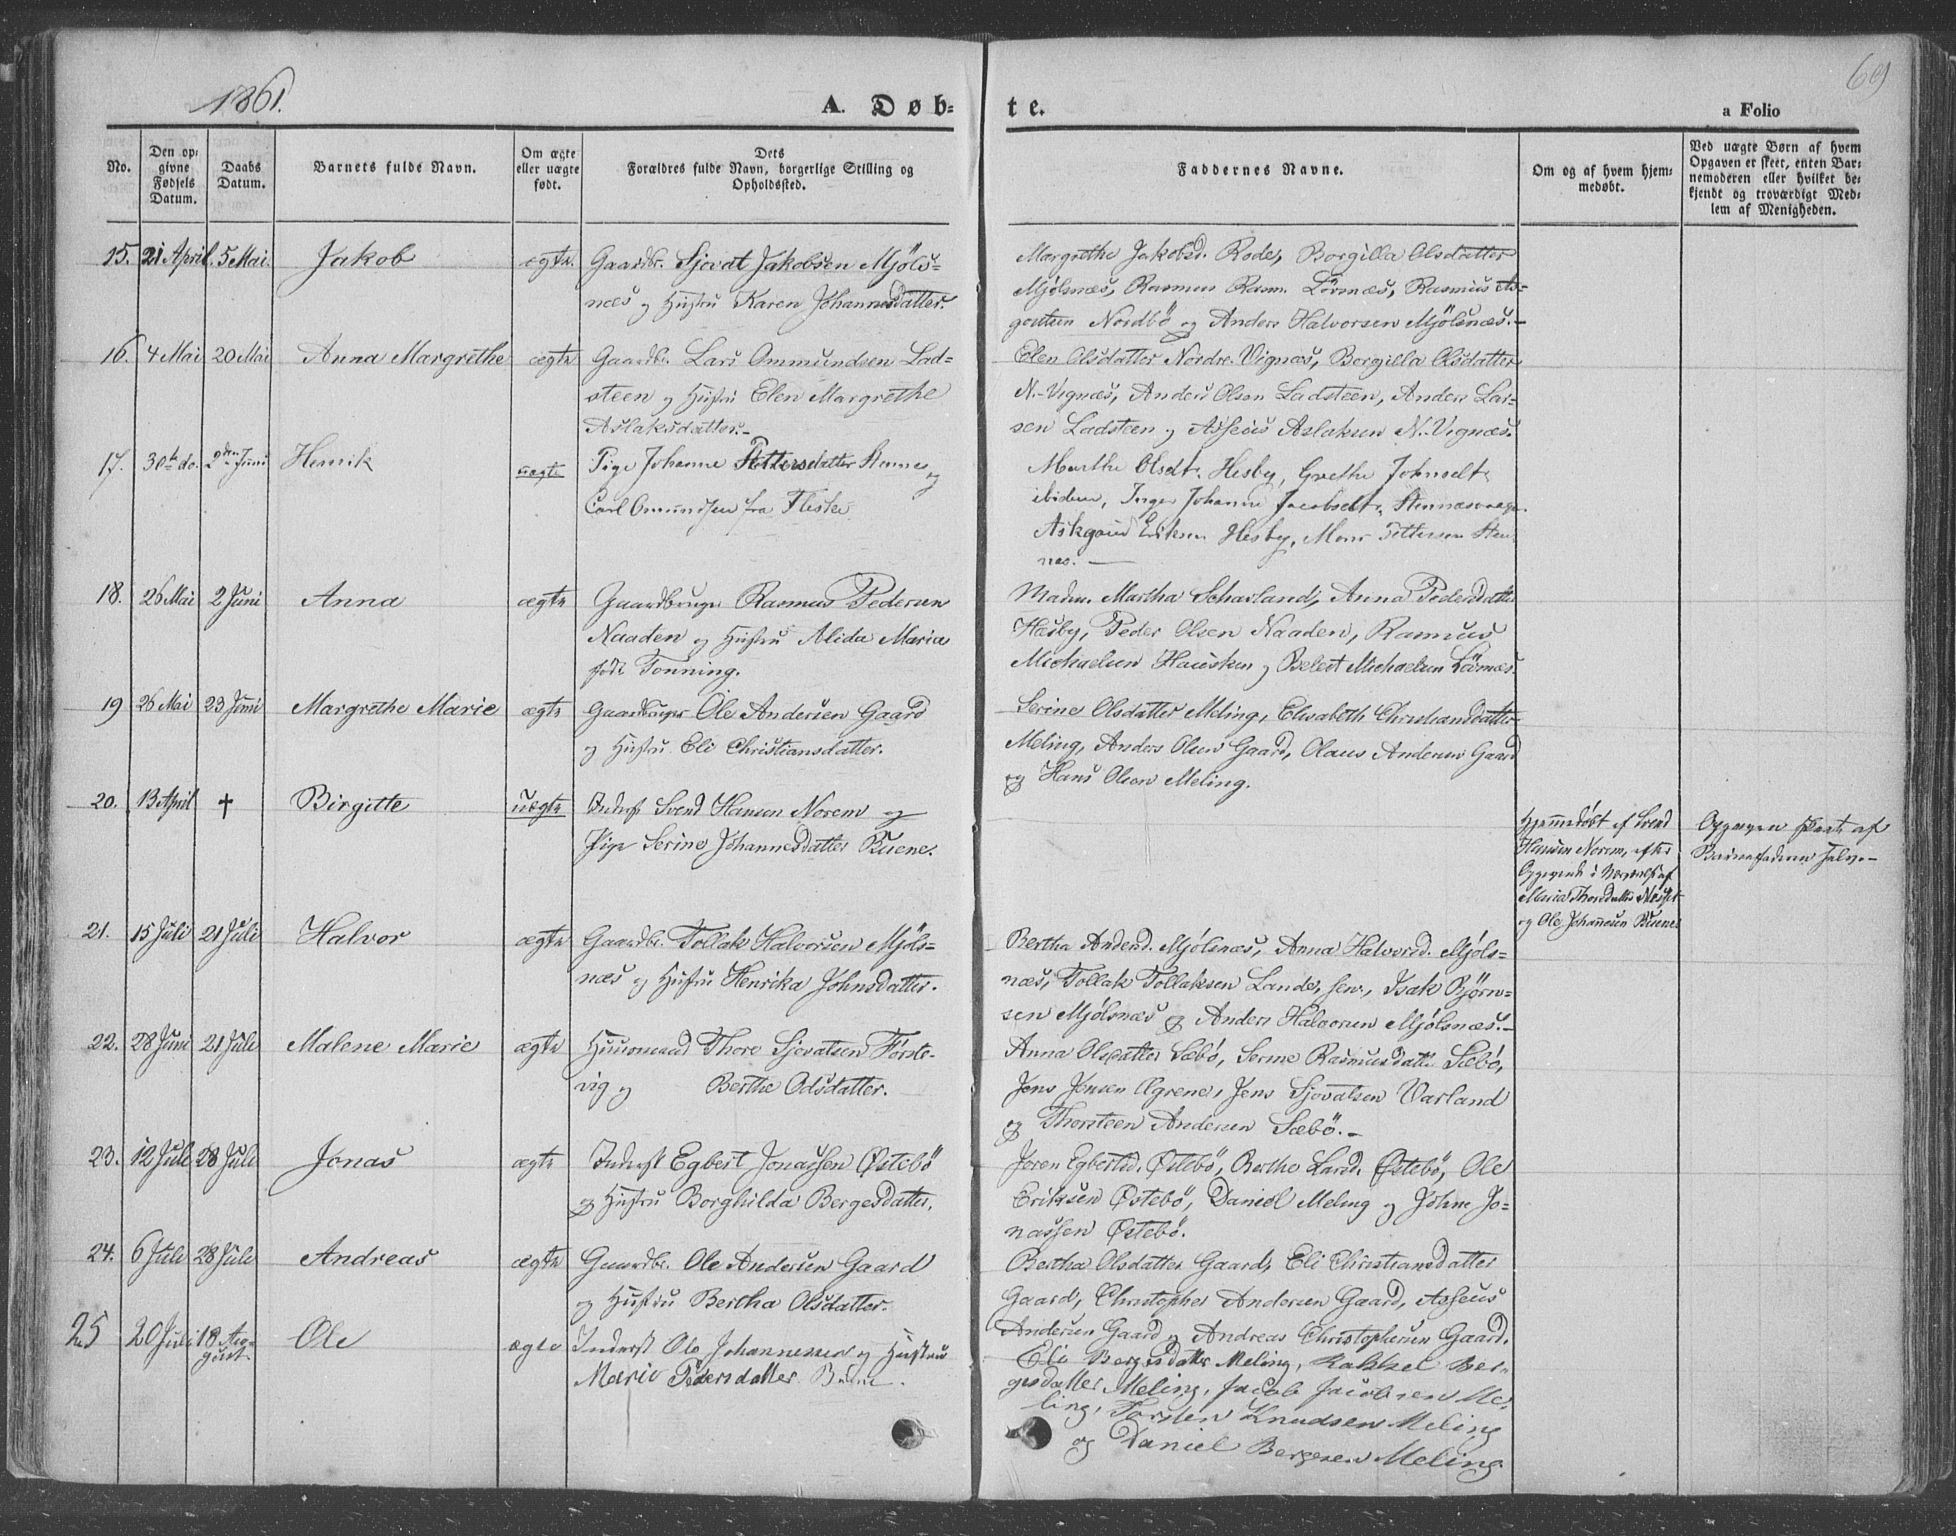 1861.
A. Døb-
te.
a Folio
69
No.
Den op-
givne
Fødsels
Datum.
Daabs
Datum.
Barnets fulde Navn.
Om ægte
eller uægte
født.
Dets
Forældres fulde Navn, borgerlige Stilling og
Opholdssted.
Faddernes Navne.
Om og af hvem hjem-
medøbt.
Ved uægte Børn af hvem
Opgaven er skeet, enten Bar-
nemoderen eller hvilket be-
kjendt og troværdigt Med-
lem af Menigheden.
15. 21 April. 5 Mai. Jakob ægte. Gaardbr. Sjovat Jakobsen Mjöls-
næs og Hustru Karen Johannesdatter.
Margrethe Jakobsd. Rode, Borgilla Olsdatter
Mjølsnæs, Rasmus Rasm. Lövnæs, Rasmus As-
gautsen Nordbö og Anders Halvorsen Mjölsnæs.-
16. 4 Mai 20 Mai Anna Margrethe ægte Gaardbr. Lars Ommundsen Lad-
steen og Hustru Elen Margrethe
Aslaksdatter.-
Elen Olsdatter Nordre Vignæs, Borgilla Olsdatter
N.-Vignæs, Anders Olsen Ladsteen, Anders Lar-
sen Ladsteen og Asseus Aslaksen N.-Vignæs.
17. 30te do. 2den Juni Henrik uægte Pige Johanne Pettersdatter Stennes og
Carl Omundsen fra Fliske
Marthe Olsdt. Hesby, Grethe Johnsdt.
ibidem, Inger Johanne Jacobsdt.
Askgaut Eriksen Hesby, Mons Pettersen Sten-
nes. -
18. 26 Mai 2 Juni Anna ægte Gaardbruger Rasmus Pedersen
Naaden og Hustru Alida Maria
født Tonning.
Madm. Martha Scharland, Anna Pedersdatter
Hæsby, Peder Olsen Naaden, Rasmus
Michaelsen Hausken og Belest Michaelsen Lövnæs.
19 26 Mai 23 Juni Margrethe Marie ægte Gaardbruger Ole Andersen Gaard
og Hustru Eli Christiansdatter.
Serine Olsdatter Meling, Elisabeth Christiansdatter
Meling, Anders Olsen Gaard, Olaus Andersen Gaard
og Hans Olsen Meling.
20. 13 April † Birgitte uægte Inderst Svend Hansen Norem og
Pige Serine Johannesdatter Buene.
Hjemmedøbt af Svend
Hansen Norem, efter
Opgivende i Nærvær af
Maria Thorsdatter
og Ole Johannesen Buene
Opgaven skeet af
Barnefaderen selv.-
21. 15 Juli 21 Juli Halvor ægte Gaardbr. Tollak Halvorsen Mjöls-
næs og Hustru Henrika Johnsdatter.
Bertha Andersd. Mjölsnæs, Anna Halvorsd. Mjøls-
næs, Tollak Tollaksen Lande, sen., Isak Björn-
sen Mjølsnæs og Anders Halvorsen Mjølsnæs.-
22. 28 Juni 21 Juli Malene Marie ægte Huusmand Thore Sjovatsen Förste-
vig og Berthe Odsdatter.
Anna Olsdatter Sæbö, Serine Rasmusdatter Sæbö,
Jens Jensen Ægrene, Jens Sjovatsen Varland
og Thorsteen Andersen Sæbö.-
23. 12 Juli 28 Juli Jonas ægte Inderst Egbert Jonassen Østebö
og Hustru Borghilda Bergesdatter.
Joren Egbertsd. Østebö, Berthe Larsd. Østebö, Ole
Eriksen Østebö, Daniel Meling og Johne Jo-
nassen Østebö.
24. 6 Juli 28 Juli Andreas ægte Gaardbr. Ole Andersen Gaard
og Hustru Bertha Olsdatter.
Bertha Olsdatter Gaard, Eli Christiansdatter
Gaard, Christopher Andersen Gaard, Asseus
Andersen Gaard og Andreas Christophersen Gaard.
25 20 Juli 18 Au-
gust Ole ægte Inderst Ole Johannesen og Hustru
Marie Pedersdatter Buene.
Eli Bergesdatter Meling, Rakkel Ber-
gesdatter Meling, Jacob Jacobsen Me-
ling, Torsten Knudsen Meling
og Daniel Bergesen Meling